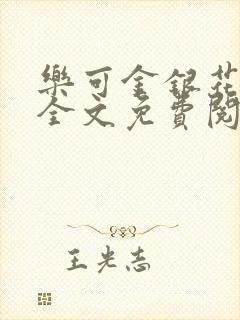 樂可金銀花
全文免費閱
王光志